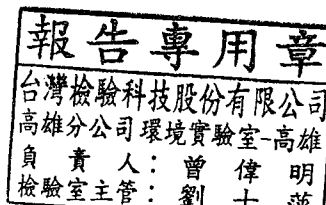 報告專用章
台灣檢驗科技股份有限公司
高雄分公司環境實驗室-高雄
負責人：曾偉明
檢驗室主管：劉士